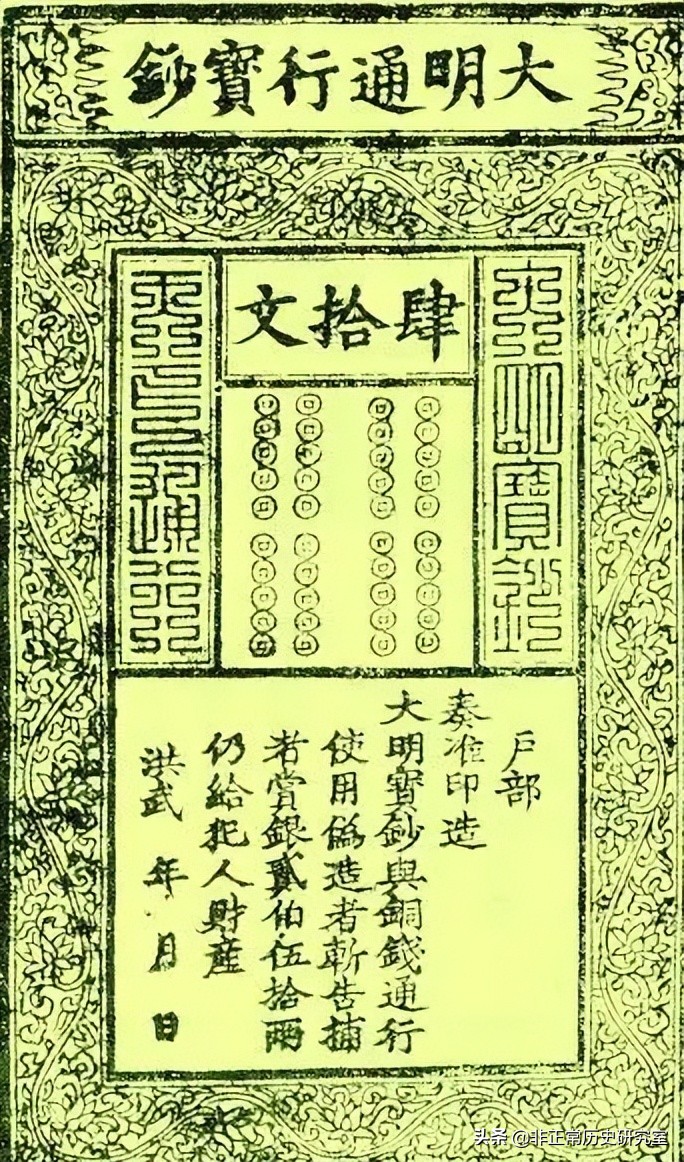 大明通行寶鈔
肆拾文
大明寶鈔
天下通行
户部
奏准印造
大明寶鈔與銅錢通行
使用僞造者斬告捕
者賞銀貳伯伍拾兩
仍給犯人財産
洪武 年 月 日
头条 @非正常历史研究室